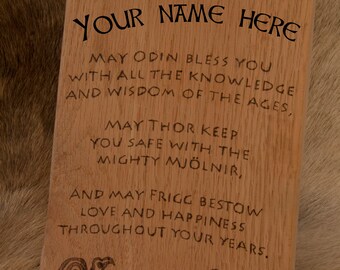 Your name here
May Odin bless you
with all the knowledge
and wisdom of the ages,
may Thor keep
you safe with the
mighty Mjölnir,
and may Frigg bestow
love and happiness
throughout your years.